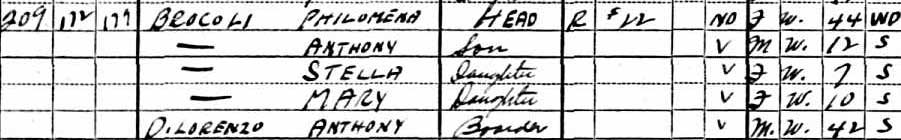 209 172 177 BROCOLI PHILOMENA HEAD R $12 NO F W. 44 WD
— ANTHONY Son V M W. 12 S
— STELLA Daughter V F W. 7 S
— MARY Daughter V F W. 10 S
D.LORENZO ANTHONY Boarder V M. W. 42 S